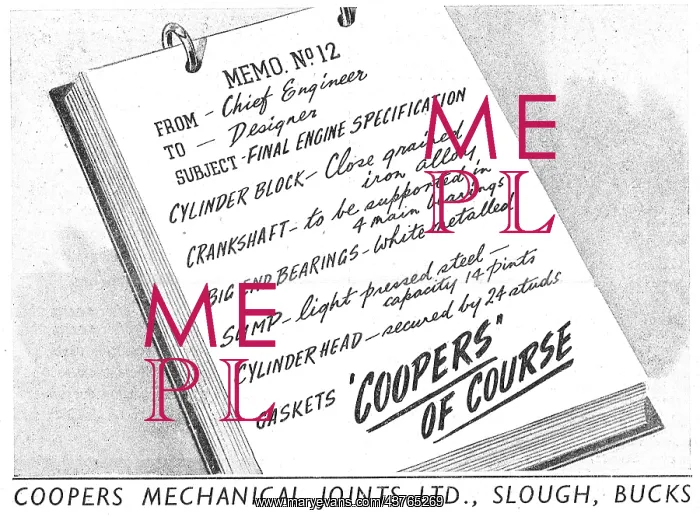 MEMO. Nº 12
FROM - Chief Engineer
TO - Designer
SUBJECT - FINAL ENGINE SPECIFICATION
CYLINDER BLOCK - Close grained
iron alloy
CRANKSHAFT - to be supported in
4 main bearings
BIG END BEARINGS - white metalled
SUMP - light pressed steel -
capacity 14 pints
CYLINDER HEAD - secured by 24 studs
GASKETS 'COOPERS"
OF COURSE
ME
PL
ME
PL
COOPERS MECHANICAL JOINTS LTD., SLOUGH, BUCKS
www.maryevans.com/49765269